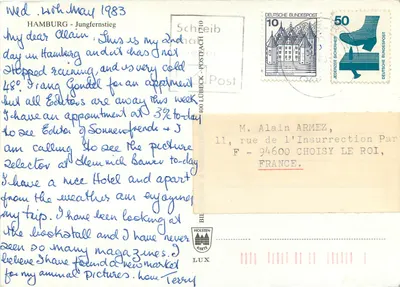 Wed. 4th May 1983
HAMBURG - Jungfernstieg
My dear Alain. This is my 2nd
day in Hamburg and it has not
stopped raining, and is very cold
48°. I rang Gondel for an appointment
but all Editors are away this week
I have an appointment at 3 to-day
to see Editor of Sonnenfreunde + I
am calling to see the picture
selector at Heinrich Bauer to-day
I have a nice Hotel and apart
from the weather am enjoying
my trip. I have been looking at
the bookstall and I have never
seen so many magazines. I
believe I have found a new market
for my animal pictures. Love Terry
Schreib
Post
LÜBECK - POSTFACH
10
DEUTSCHE BUNDESPOST
50
M. Alain ARMEZ,
11, rue de l'Insurrection Par
F - 94600 CHOISY LE ROI,
FRANCE.
LUX